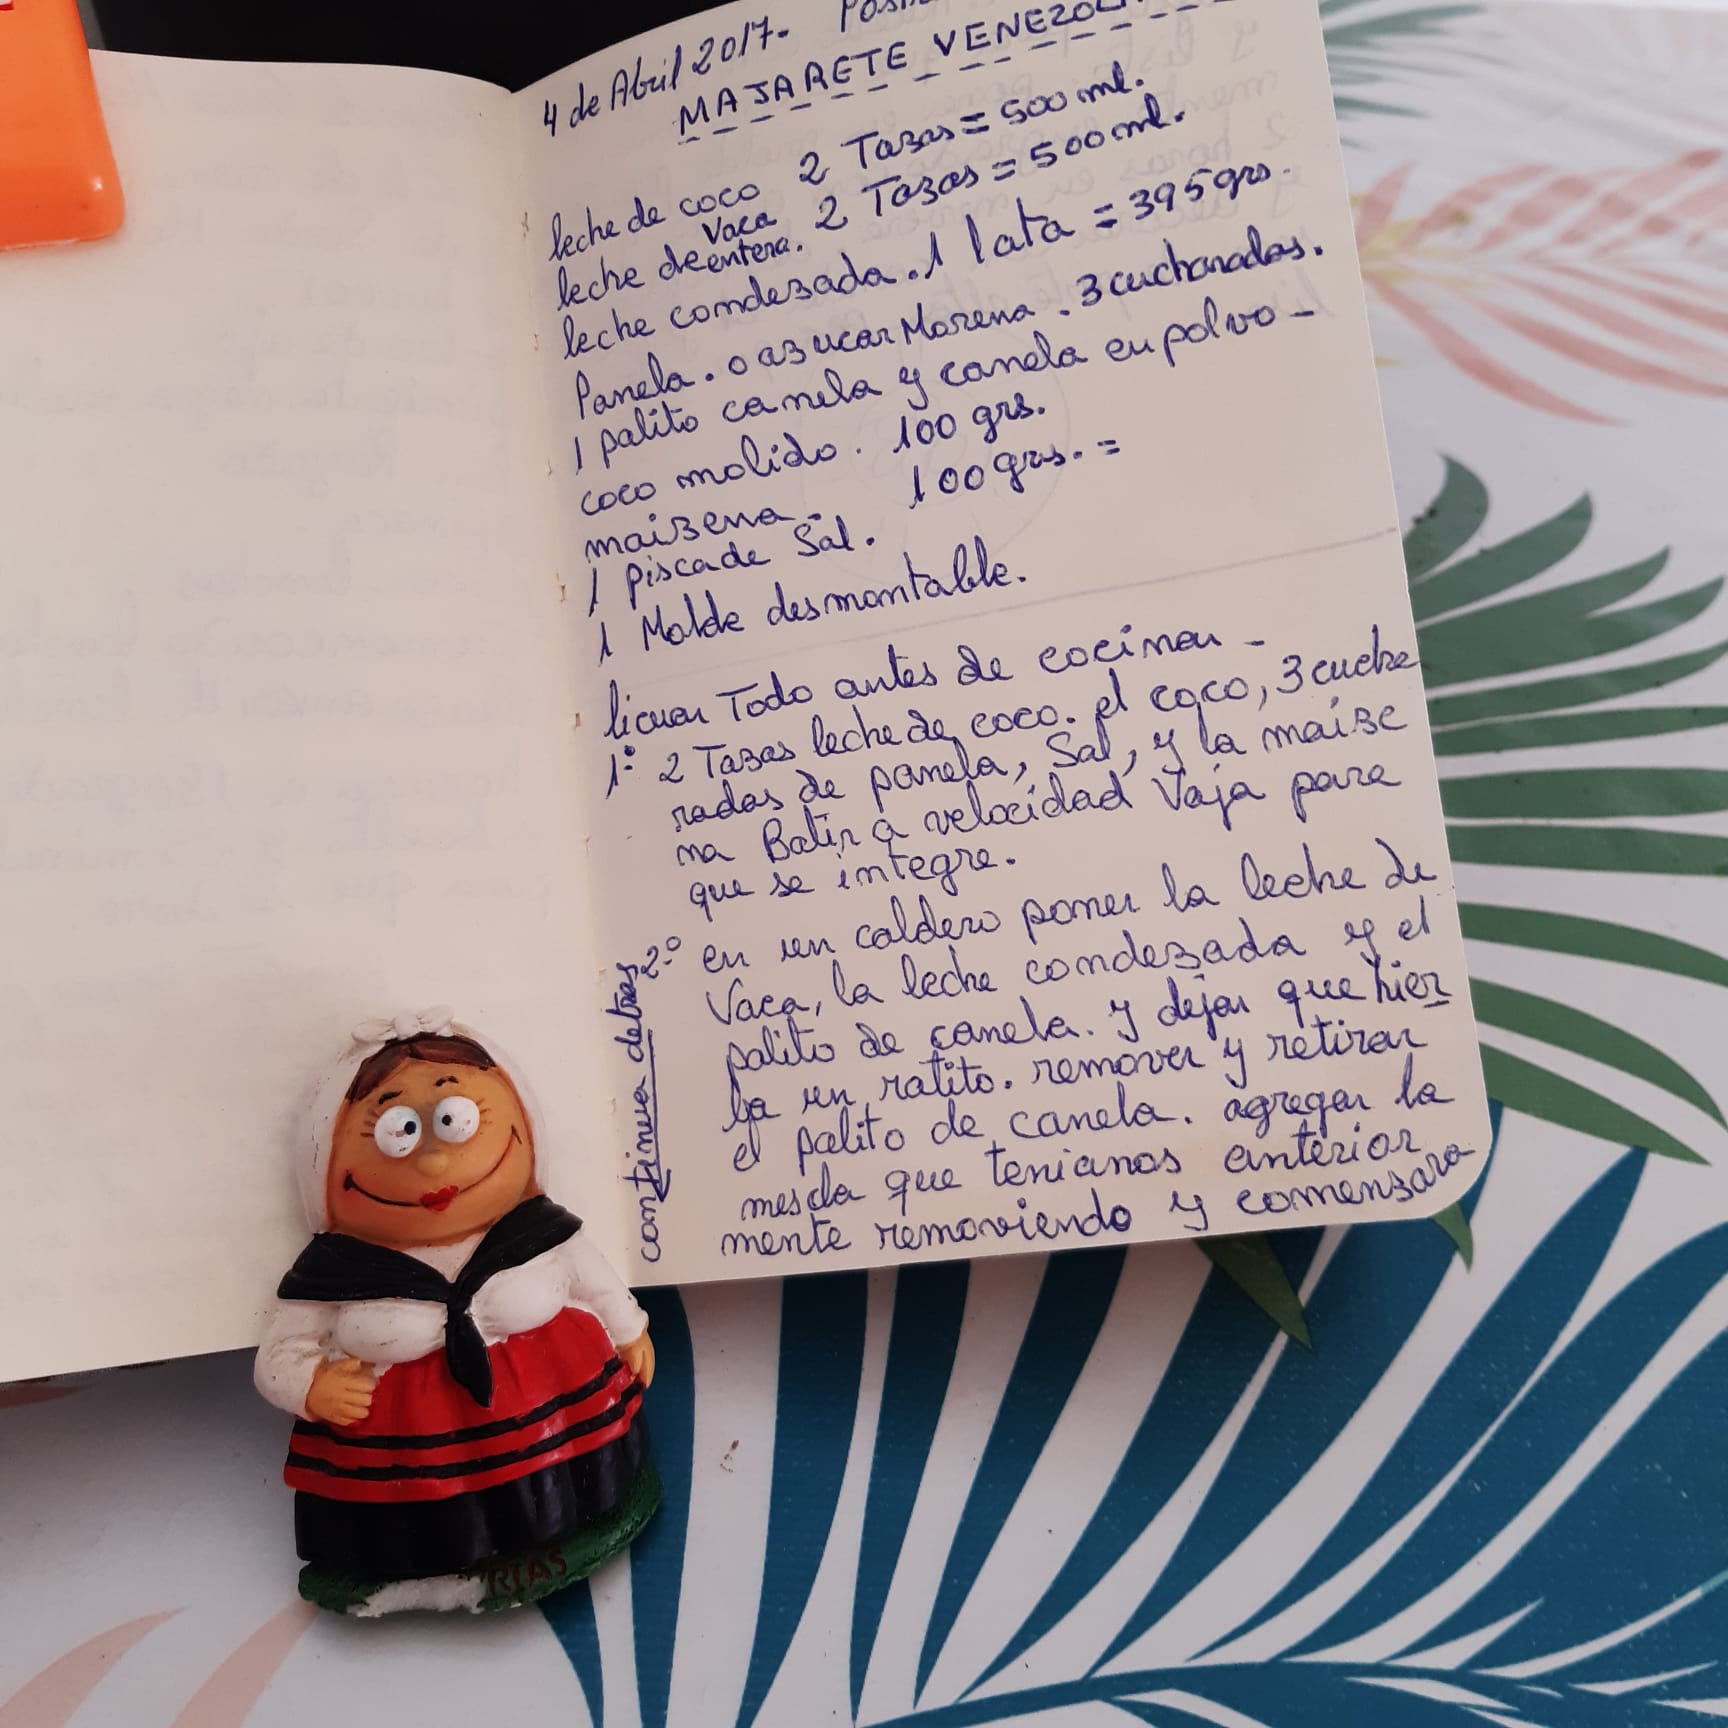 4 de Abril 2017-
MAJARETE VENEZOL
leche de coco 2 Tazas = 500 ml.
leche de Vaca entera. 2 Tazas = 500 ml.
leche condezada. 1 lata = 395 grs.
Panela. o azucar Morena. 3 cucharadas.
1 palito canela y canela en polvo -
coco molido. 100 grs.
maizena - 100 grs. =
1 pisca de Sal.
1 Molde desmontable.
licuar Todo antes de cocinar -
1º 2 Tazas leche de coco. el coco, 3 cucha
radas de panela, Sal, y la maize
na Batir a velocidad Vaja para
que se integre.
2º en un caldero poner la leche de
Vaca, la leche condezada y el
palito de canela. y dejar que hier
ba un ratito. remover y retirar
el palito de canela. agregar la
mescla que tenianos anterior
mente removiendo y comenzara
continua detras
RIAS